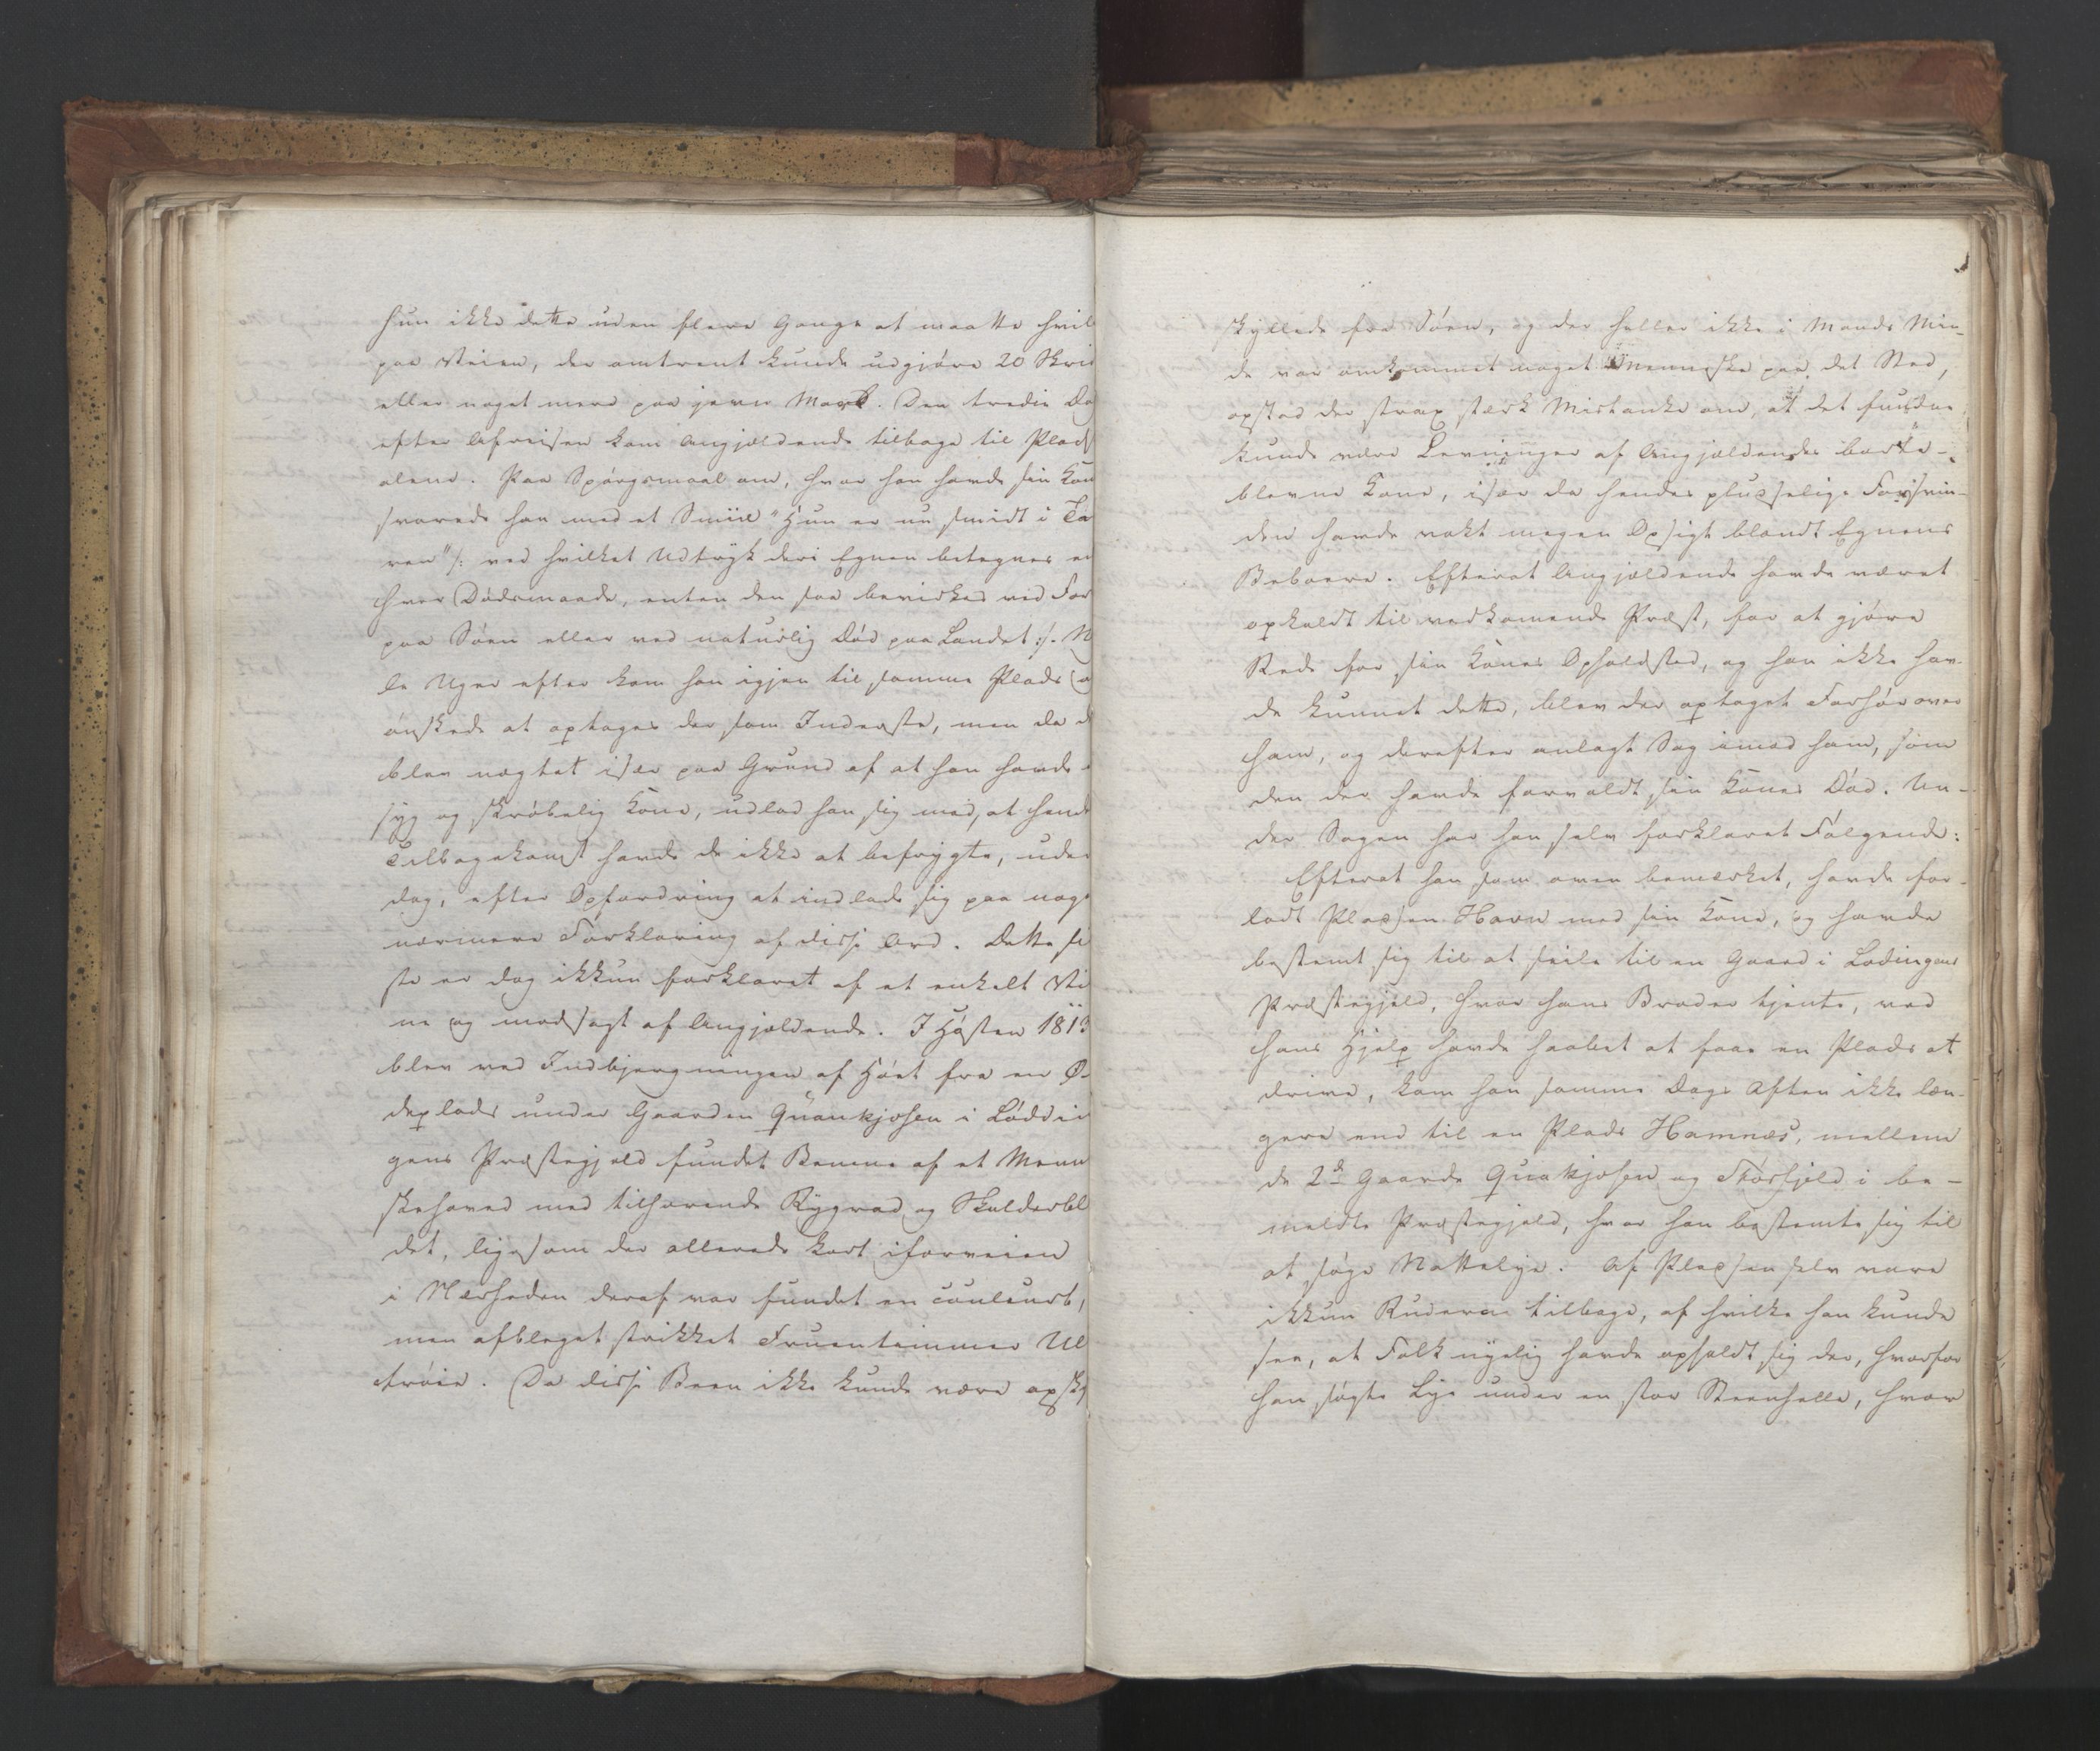 hun ikke dette uden flere Gange at maatte hvil
paa Veien, der omtrent kunde udgjøre 20 Skrid
eller noget mere paa jævn Mark. Den tredie Da
efter Afreisen kom Angjældende tilbage til Plads
alene. Paa Spørgsmaal om, hvor han havde sin Kon
svarede han med et Smiil "Hun er nu smidt i Ta
ren" /: ved hvilket Udtryk deri Egnen betegnes en
hver Dødsmaade, enten den saa bevirkes ved For
paa Søen eller ved naturlig Død paa Landet :/. N
le Uger efter kom han igjen til samme Plads o
ønskede at optages der som Inderste, men da d
blev nægtet især paa Grund af at han havde e
syg og skrøbelig Kone, udlod han sig med, at hend
Tilbagekomst havde de ikke at befrygte, uden
dog, efter Opfordring at indlade sig paa noge
nærmere Forklaring af disse Ord. Dette si
ste er dog ikkun forklaret af et enkelt Vi
ne og modsagt af Angjældende. I Høsten 1813
blev ved Indbjergningen af Høet fra en Ø-
deplads under Gaarden Quankjosen i Løddin
gens Præstegjeld fundet Benene af et Menn
skehoved med tilhørende Rygrad og Skulderbl
det, ligesom der allerede kort iforveien
i Nærheden deraf var fundet en couleurt,
men afbleget strikket Fruentimmer Ul
trøie. Da disse Been ikke kunde være opsk
skyllede fra Søen, og der heller ikke i Mands Min-
de var omkommet noget Menneske paa det Sted,
opstod der strax stærk Mistanke om, at det fundne
kunde være Levninger af Angjældendes borte-
blevne Kone, især da hendes pludselige Forsvin-
den havde vakt megen Opsigt blandt Egnens
Beboere. Efterat Angjældende havde været
opkaldt til vedkomende Præst, for at gjøre
Rede for sin Kones Opholdsted, og han ikke hav-
de kunnet dette, blev der optaget Forhør over
ham, og derefter anlagt Sag imod ham, som
den der havde forvoldt sin Kones Død. Un-
der Sagen har han selv forklaret Følgende:
Efterat han som oven bemærket, havde for-
ladt Pladsen Havn med sin Kone, og havde
bestemt sig til at seile til en Gaard i Lodingens
Præstegjeld, hvor hans Broder tjente, ved
hans Hjelp havde haabet at faae en Plads at
drive, kom han samme Dags Aften ikke læn-
gere end til en Plads Hamnæs, mellem
de 2de Gaarde Quakjosen og Storfjeld i be-
meldte Præstegjeld, hvor han bestemte sig til
at søge Nattelye. Af Pladsen selv vare
ikkun Ruderne tilbage, af hvilke han kunde
see, at Folk nyelig havde opholdt sig der, hvorfor
han søgte Lye under en stor Steenhelle, hvor